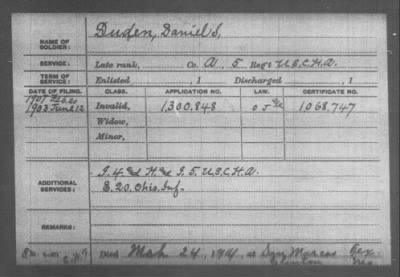 NAME OF SOLDIER: Duden, Daniel S,
SERVICE: Late rank, Co. A, 5 Reg't U.S.C.H.A.
TERM OF SERVICE: Enlisted , 1 Discharged , 1
DATE OF FILING. CLASS. APPLICATION NO. LAW. CERTIFICATE NO.
1907
1903 Invalid, 1,300,848 1068,747
Widow,
Minor,
ADDITIONAL SERVICES: I. 4 & H. & I. 5. U.S.C.H.A.
E. 20. Ohio. Inf.
REMARKS:
Died Mch 24, at San Marcos Tex.